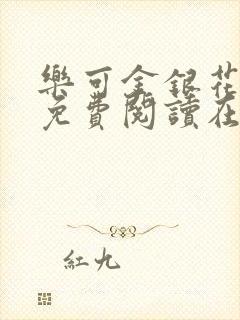 樂可金銀花
免費閱讀在
紅九